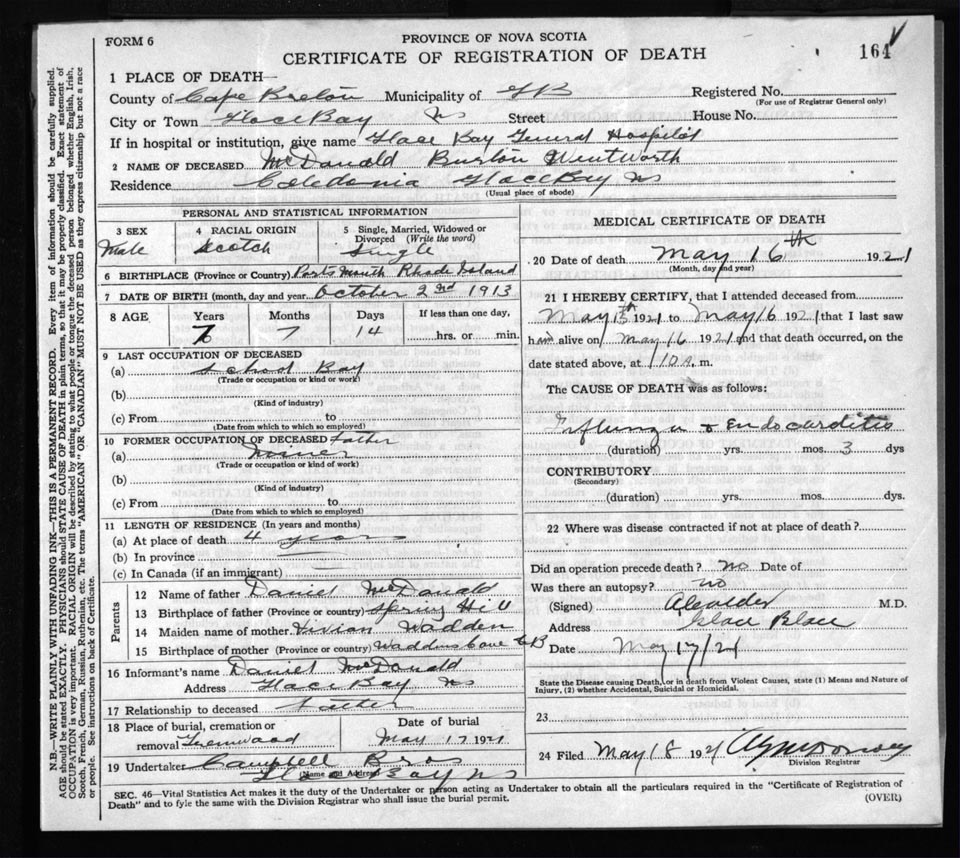 FORM 6
PROVINCE OF NOVA SCOTIA
CERTIFICATE OF REGISTRATION OF DEATH
164
1 PLACE OF DEATH—
County of Cape Breton Municipality of GB Registered No.
(For use of Registrar General only)
City or Town Glace Bay NS Street House No.
If in hospital or institution, give name Glace Bay General Hospital
2 NAME OF DECEASED McDonald Burton Wentworth
Residence Caledonia Glace Bay NS
(Usual place of abode)
PERSONAL AND STATISTICAL INFORMATION
3 SEX 4 RACIAL ORIGIN 5 Single, Married, Widowed or Divorced (Write the word)
Male Scotch Single
6 BIRTHPLACE (Province or Country) Ports Mouth Rhode Island
7 DATE OF BIRTH (month, day and year) October 2nd 1913
8 AGE Years Months Days If less than one day,
7 7 14 hrs. or min.
9 LAST OCCUPATION OF DECEASED
(a) School Boy
(Trade or occupation or kind or work)
(b)
(Kind of industry)
(c) From to
(Date from which to which so employed)
10 FORMER OCCUPATION OF DECEASED Father
(a) Miner
(Trade or occupation or kind of work)
(b)
(Kind of industry)
(c) From to
(Date from which to which so employed)
11 LENGTH OF RESIDENCE (In years and months)
(a) At place of death 4 years
(b) In province
(c) In Canada (if an immigrant)
Parents
12 Name of father Daniel McDonald
13 Birthplace of father (Province or country) Spring Hill
14 Maiden name of mother Vivian Wadden
15 Birthplace of mother (Province or country) Waddens Cove CB
16 Informant's name Daniel McDonald
Address Glace Bay NS
17 Relationship to deceased Father
18 Place of burial, cremation or removal Greenwood
Date of burial
May 17 1921
19 Undertaker Campbell Bros
(Name and Address)
Glace Bay NS
MEDICAL CERTIFICATE OF DEATH
20 Date of death May 16th 1921
(Month, day and year)
21 I HEREBY CERTIFY, that I attended deceased from
May 13th 1921 to May 16 1921 that I last saw
him alive on May 16 1921 and that death occurred, on the
date stated above, at 1 10 A. m.
The CAUSE OF DEATH was as follows:
Influenza & Endocarditis
(duration) yrs. mos. 3 dys
CONTRIBUTORY
(Secondary)
(duration) yrs. mos. dys.
22 Where was disease contracted if not at place of death?
Did an operation precede death? No Date of
Was there an autopsy? no
(Signed) M.D.
Address Glace
Date May 17/21
State the Disease causing Death, or in death from Violent Causes, state (1) Means and Nature of
Injury, (2) whether Accidental, Suicidal or Homicidal.
23
24 Filed May 18 1921
Division Registrar
SEC. 46—Vital Statistics Act makes it the duty of the Undertaker or person acting as Undertaker to obtain all the particulars required in the "Certificate of Registration of
Death" and to fyle the same with the Division Registrar who shall issue the burial permit.
(OVER)
N.B.—WRITE PLAINLY WITH UNFADING INK—THIS IS A PERMANENT RECORD. Every item of information should be carefully supplied.
AGE should be stated EXACTLY. PHYSICIANS should STATE CAUSE OF DEATH in plain terms, so that it may be properly classified. Exact statement of
OCCUPATION is very important. RACIAL ORIGIN will be described by stating to what people or tongue the deceased person belonged, whether English, Irish,
Scotch, French, German, Russian, Ruthenian, etc. The terms "AMERICAN" OR "CANADIAN" MUST NOT BE USED as they express citizenship but not a race
or people. See instructions on back of Certificate.